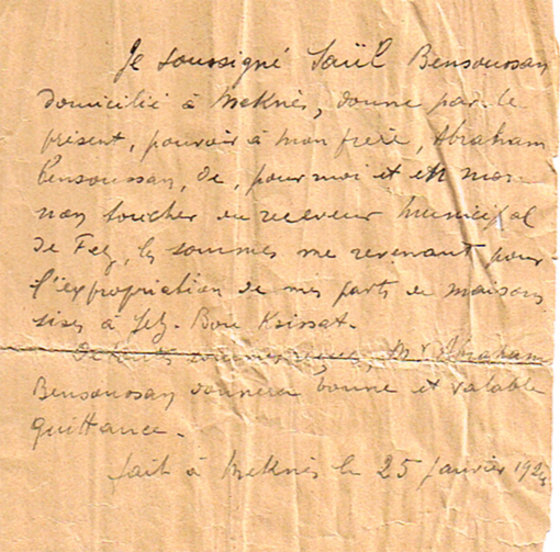 Je soussigné Saül Bensoussan
domicilié à Meknès, donne par le
présent, pouvoir à mon frère, Abraham
Bensoussan, de, pour moi et en mon
nom toucher du receveur municipal
de Fez, les sommes me revenant pour
l'expropriation de mes parts de maisons
sises à Fez. Bou Ksissat.
De toutes sommes reçues, Mr Abraham
Bensoussan donnera bonne et valable
quittance.
fait à Meknès le 25 Janvier 192